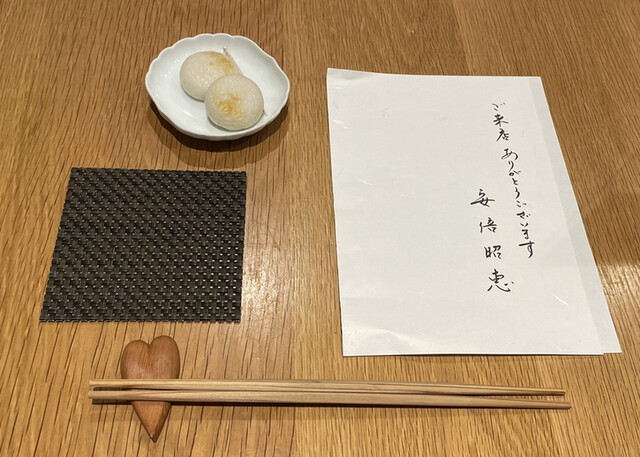 ご来店 ありがとうございます
安倍昭恵